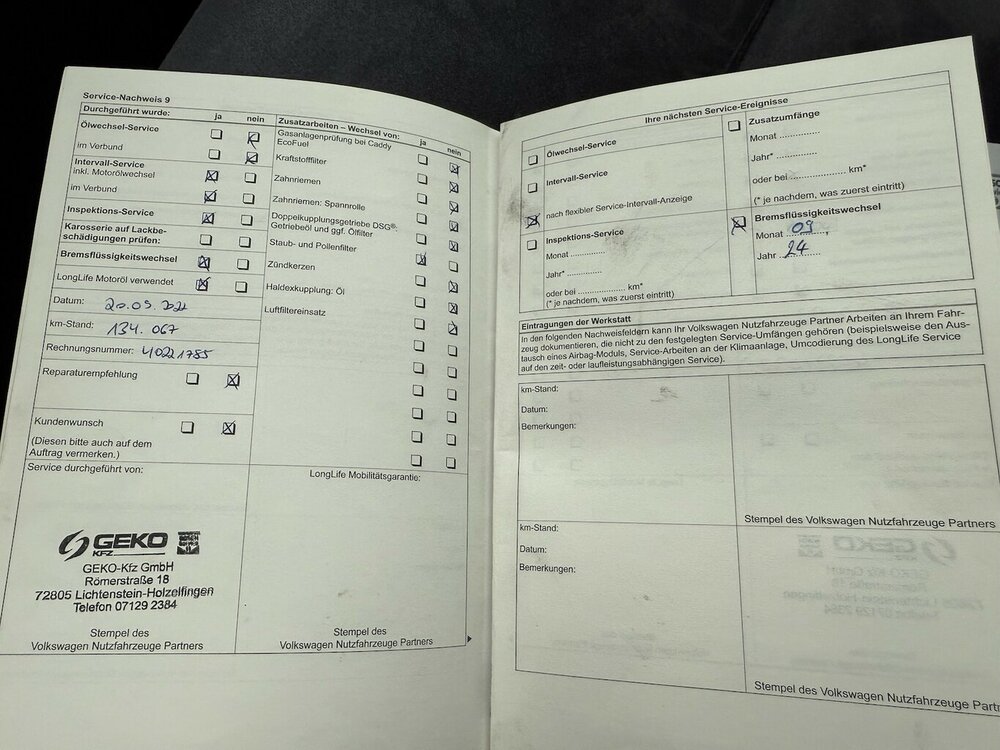 Service-Nachweis 9
Durchgeführt wurde: ja nein
Ölwechsel-Service
im Verbund
Intervall-Service
inkl. Motorölwechsel
im Verbund
Inspektions-Service
Karosserie auf Lackbe-
schädigungen prüfen:
Bremsflüssigkeitswechsel
LongLife Motoröl verwendet
Datum: 20.09.2022
km-Stand: 134.067
Rechnungsnummer: 40221785
Reparaturempfehlung
Kundenwunsch
(Diesen bitte auch auf dem
Auftrag vermerken.)
Service durchgeführt von:
GEKO
KFZ
GEKO-Kfz GmbH
Römerstraße 18
72805 Lichtenstein-Holzelfingen
Telefon 07129 2384
Stempel des
Volkswagen Nutzfahrzeuge Partners
Zusatzarbeiten – Wechsel von: ja nein
Gasanlagenprüfung bei Caddy
EcoFuel
Kraftstofffilter
Zahnriemen
Zahnriemen: Spannrolle
Doppelkupplungsgetriebe DSG®:
Getriebeöl und ggf. Ölfilter
Staub- und Pollenfilter
Zündkerzen
Haldexkupplung: Öl
Luftfiltereinsatz
LongLife Mobilitätsgarantie:
Stempel des
Volkswagen Nutzfahrzeuge Partners
Ihre nächsten Service-Ereignisse
Ölwechsel-Service
Intervall-Service
nach flexibler Service-Intervall-Anzeige
Inspektions-Service
Monat ............
Jahr* ............
oder bei ................ km*
(* je nachdem, was zuerst eintritt)
Zusatzumfänge
Monat ..............
Jahr* ..............
oder bei ..................... km*
(* je nachdem, was zuerst eintritt)
Bremsflüssigkeitswechsel
Monat 09
Jahr 24
Eintragungen der Werkstatt
In den folgenden Nachweisfeldern kann Ihr Volkswagen Nutzfahrzeuge Partner Arbeiten an Ihrem Fahr-
zeug dokumentieren, die nicht zu den festgelegten Service-Umfängen gehören (beispielsweise den Aus-
tausch eines Airbag-Moduls, Service-Arbeiten an der Klimaanlage, Umcodierung des LongLife Service
auf den zeit- oder laufleistungsabhängigen Service).
km-Stand:
Datum:
Bemerkungen:
Stempel des Volkswagen Nutzfahrzeuge Partners
km-Stand:
Datum:
Bemerkungen:
Stempel des Volkswagen Nutzfahrzeuge Partn